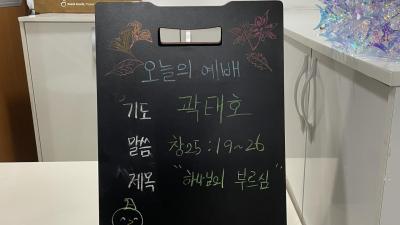 오늘의 예배
기도 곽태호
말씀 창25:19~26
제목 "하나님의 부르심"